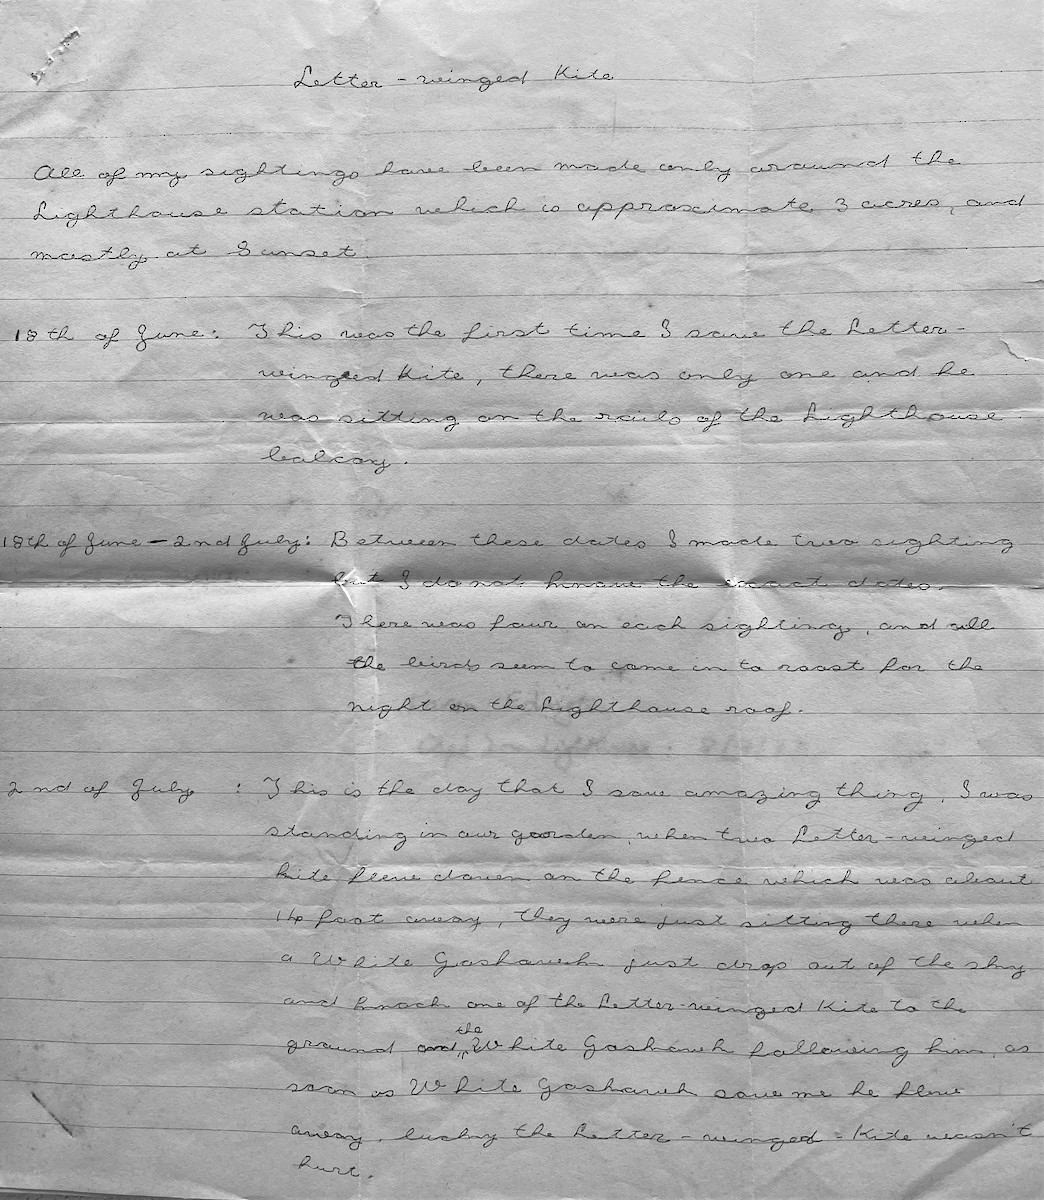 Letter-winged Kite
All of my sightings have been made only around the
Lighthouse station which is approximate 3 acres, and
mostly at Sunset.
18th of June: This was the first time I saw the Letter-
winged Kite, there was only one and he
was sitting on the rails of the Lighthouse
balcony.
18th of June - 2nd July: Between these dates I made two sighting
but I do not know the exact dates.
There was four on each sighting, and all
the birds seem to come in to roost for the
night on the Lighthouse roof.
2nd of July : This is the day that I saw amazing thing, I was
standing in our garden, when two Letter-winged
kite flew down on the fence which was about
14 foot away, they were just sitting there when
a White Goshawk just drop out of the sky
and knock one of the Letter-winged Kite to the
ground and the White Goshawk following him, as
soon as White Goshawk saw me he flew
away, lucky the Letter-winged-Kite wasn't
hurt.